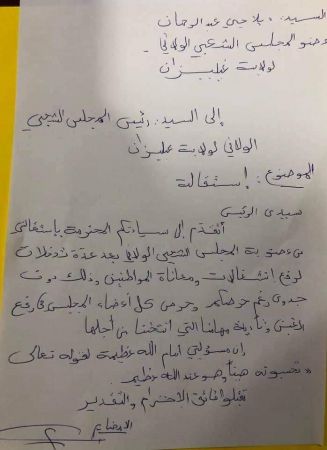 السيد: بلاحجي عبد الرحمان
عضو المجلس الشعبي الولائي.
لولاية غليزان
إلى السيد: رئيس المجلس الشعبي
الولائي لولاية غليزان
الموضوع: إستقالة
سيدي الرئيس
أتقدم إلى سيادتكم المحترمة بإستقالتي
من عضوية المجلس الشعبي الولائي بعد عدة تدخلات
لرفع انشغالات ومعاناة المواطنين وذلك دون
جدوى رغم حرصكم وحرص كل أعضاء المجلس في رفع
الغبن وتأدية مهامنا التي انتخبنا من أجلها
إن مسؤوليتي أمام الله عظيمة لقوله تعالى
"تحسبونه هينا وهو عند الله عظيم"
تقبلوا فائق الاحترام والتقدير
الإمضاء